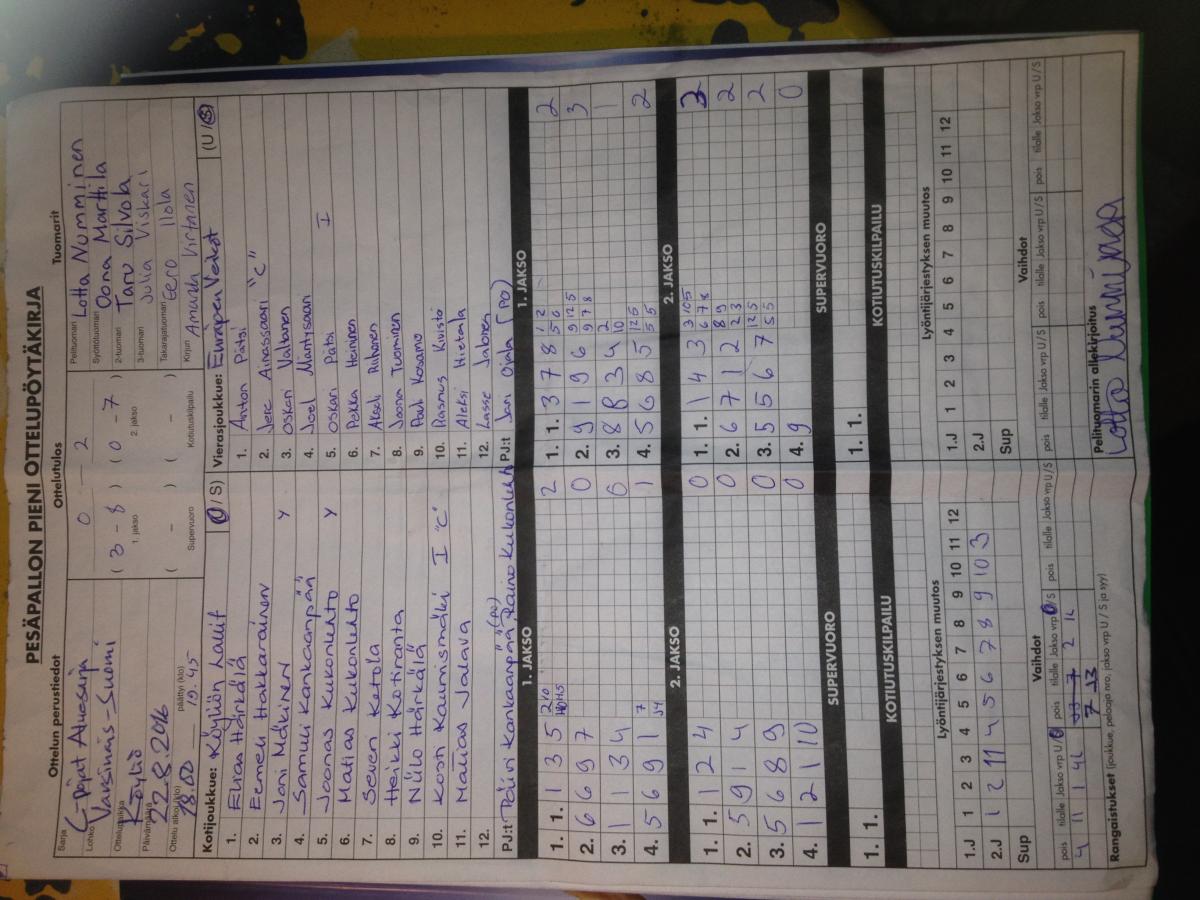 PESÄPALLON PIENI OTTELUPÖYTÄKIRJA
Ottelun perustiedot Ottelutulos Tuomarit
Sarja C-pojat Aluesarja
Lohko Varsinais-Suomi
Ottelupaikka Köyliö
Päivämäärä 22.8.2016
Ottelu alkoi (klo) 18.00 päättyi (klo) 19.45
0 - 2
( 3 - 8 ) ( 0 - 7 )
1. jakso 2. jakso
( - ) ( - )
Supervuoro Kotiutuskilpailu
Pelituomari Lotta Numminen
Syöttötuomari Oona Marttila
2-tuomari Taru Silvola
3-tuomari Julia Viskari
Takarajatuomari Eero Ilola
Kirjuri Amanda Virtanen
Kotijoukkue: Köyliön Lallit (U / S)
1. Elias Härkälä
2. Eemeli Hakkarainen
3. Jani Mäkinen Y
4. Samuli Kankaanpää
5. Joonas Kukonlehto Y
6. Matias Kukonlehto
7. Severi Ketola
8. Heikki Kotiranta
9. Niilo Härkälä
10. Kosti Kaunismäki I "C"
11. Matias Jalava
12.
PJ:t Päivi Kankaanpää (PO), Raino Kukonlehto
Vierasjoukkue: Eurajoen Veikot (U / S)
1. Anton Pätsi
2. Jere Ainassaari "C"
3. Oskari Valtonen
4. Joel Mäntysaari
5. Oskari Pätsi I
6. Pekka Heinonen
7. Akseli Riihonen
8. Joona Tuominen
9. Pauli Kosamo
10. Rasmus Kivistö
11. Aleksi Hietala
12. Lasse Jalonen
PJ:t Jani Ojala (PO)
1. JAKSO 1. JAKSO
1. 1. 1 3 5 2
2. 6 6 9 7 0
3. 1 1 3 4 0
4. 5 6 9 1 1
1. 1. 3 7 8 2
2. 9 1 9 6 3
3. 8 8 3 4 1
4. 5 6 8 5 2
2. JAKSO 2. JAKSO
1. 1. 1 2 4 0
2. 5 9 1 4 0
3. 5 6 8 9 0
4. 1 2 1 10 0
1. 1. 1 4 3 3
2. 6 7 1 2 2
3. 5 5 6 7 2
4. 9 0
SUPERVUORO SUPERVUORO
1. 1. 1. 1.
KOTIUTUSKILPAILU KOTIUTUSKILPAILU
Lyöntijärjestyksen muutos
1 2 3 4 5 6 7 8 9 10 11 12
1.J
2.J 1 2 11 4 5 6 7 8 9 10 3
Sup
Lyöntijärjestyksen muutos
1 2 3 4 5 6 7 8 9 10 11 12
1.J
2.J
Sup
Vaihdot
pois tilalle Jakso vrp U/S pois tilalle Jakso vrp U/S pois tilalle Jakso vrp U/S
4 11 1 4L
Vaihdot
pois tilalle Jakso vrp U/S pois tilalle Jakso vrp U/S pois tilalle Jakso vrp U/S
Rangaistukset (joukkue, pelaaja nro, jakso vrp U / S ja syy)
Pelituomarin allekirjoitus
Lotta Numminen